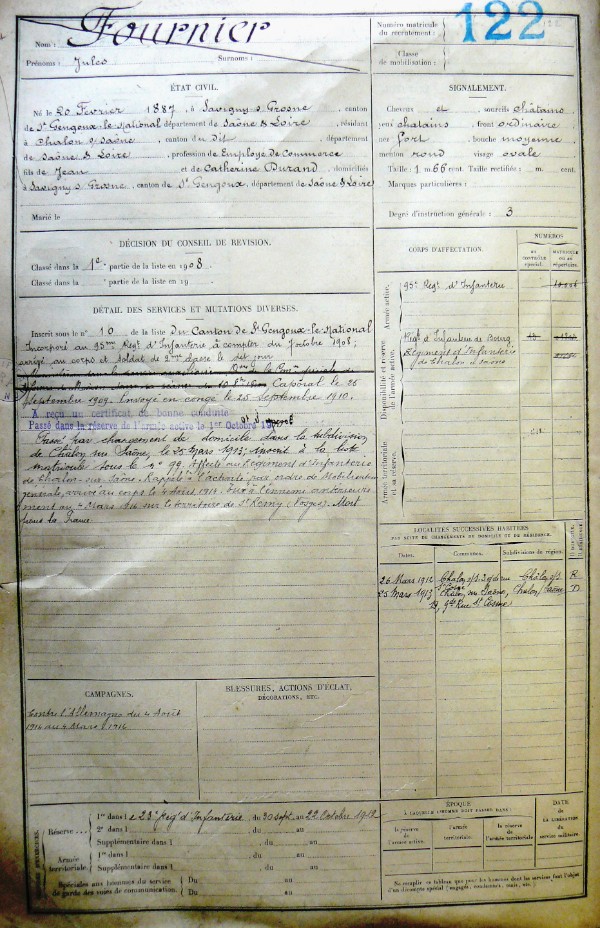 Nom : Fournier
Prénoms : Jules Surnoms :
Numéro matricule du recrutement : 122
Classe de mobilisation :
ÉTAT CIVIL.
Né le 20 Février 1887, à Savigny s Grosne, canton
de St Gengoux-le-National, département de Saône & Loire, résidant
à Chalon s/ Saône, canton du Dit, département
de Saône & Loire, profession de Employé de Commerce
fils de Jean et de Catherine Durand, domiciliés
à Savigny s Grosne, canton de St Gengoux, département de Saône & Loire
Marié le
SIGNALEMENT.
Cheveux et sourcils châtains
yeux châtains, front ordinaire
nez fort, bouche moyenne
menton rond visage ovale
Taille : 1 m. 66 cent. Taille rectifiée : m. cent.
Marques particulières :
Degré d'instruction générale : 3
DÉCISION DU CONSEIL DE REVISION.
Classé dans la 1re partie de la liste en 1908
Classé dans la partie de la liste en 19
DÉTAIL DES SERVICES ET MUTATIONS DIVERSES.
Inscrit sous le n° 10 de la liste du Canton de St Gengoux-le-National
Incorporé au 95me Régt d'Infanterie à compter du 7 octobre 1908;
arrivé au corps et soldat de 2me classe le dit jour
Caporal le 26
Septembre 1909. Envoyé en congé le 25 Septembre 1910.
A reçu un certificat de bonne conduite
Passé dans la réserve de l'armée active le 1er Octobre 1910
Passé par changement de domicile dans la subdivision
de Chalon sur Saône, le 25 mars 1913; inscrit à la liste
matricule sous le n° 99. Affecté au Régiment d'Infanterie
de Chalon-sur-Saône. Rappelé à l'activité par ordre de Mobilisation
générale, arrivé au corps le 4 août 1914. Tué à l'ennemi antérieure
ment au 4 Mars 1916 sur le territoire de St Remy (Vosges). Mort
pour la France
CORPS D'AFFECTATION.
NUMÉROS
AU CONTRÔLE SPÉCIAL.
MATRICULE OU AU RÉPERTOIRE.
Armée active.
95e Régt d'Infanterie
Disponibilité et réserve de l'armée active.
Régt d'Infanterie de Bourg
Régiment d'Infanterie
de Chalon s/ Saône
Armée territoriale et sa réserve.
LOCALITÉS SUCCESSIVES HABITÉES
PAR SUITE DE CHANGEMENTS DE DOMICILE OU DE RÉSIDENCE.
Dates. Communes. Subdivisions de région.
26 Mars 1912 Chalon s/s. Chalon s/s. R
25 Mars 1913 Chalon sur Saône, Chalon s/ Saône D
19, Gde Rue St Cosme
CAMPAGNES.
Contre l'Allemagne du 4 Août
1914 au 4 Mars 1916
BLESSURES, ACTIONS D'ÉCLAT,
DÉCORATIONS, ETC.
Réserve
1re dans le 23e Régt d'Infanterie, du 30 sept. au 22 Octobre 1912
2e dans l , du au
Supplémentaire dans l , du au
Armée territoriale.
1re dans l , du au
Supplémentaire dans l , du au
Spéciales aux hommes du service de garde des voies de communication.
Du au
Du au
ÉPOQUE
À LAQUELLE L'HOMME DOIT PASSER DANS :
la réserve de l'armée active.
l'armée territoriale.
la réserve de l'armée territoriale.
DATE DE LA LIBÉRATION du service militaire
Ne remplir ce tableau que pour les hommes dont les services font l'objet
d'un décompte spécial (engagés, condamnés, omis, etc.)